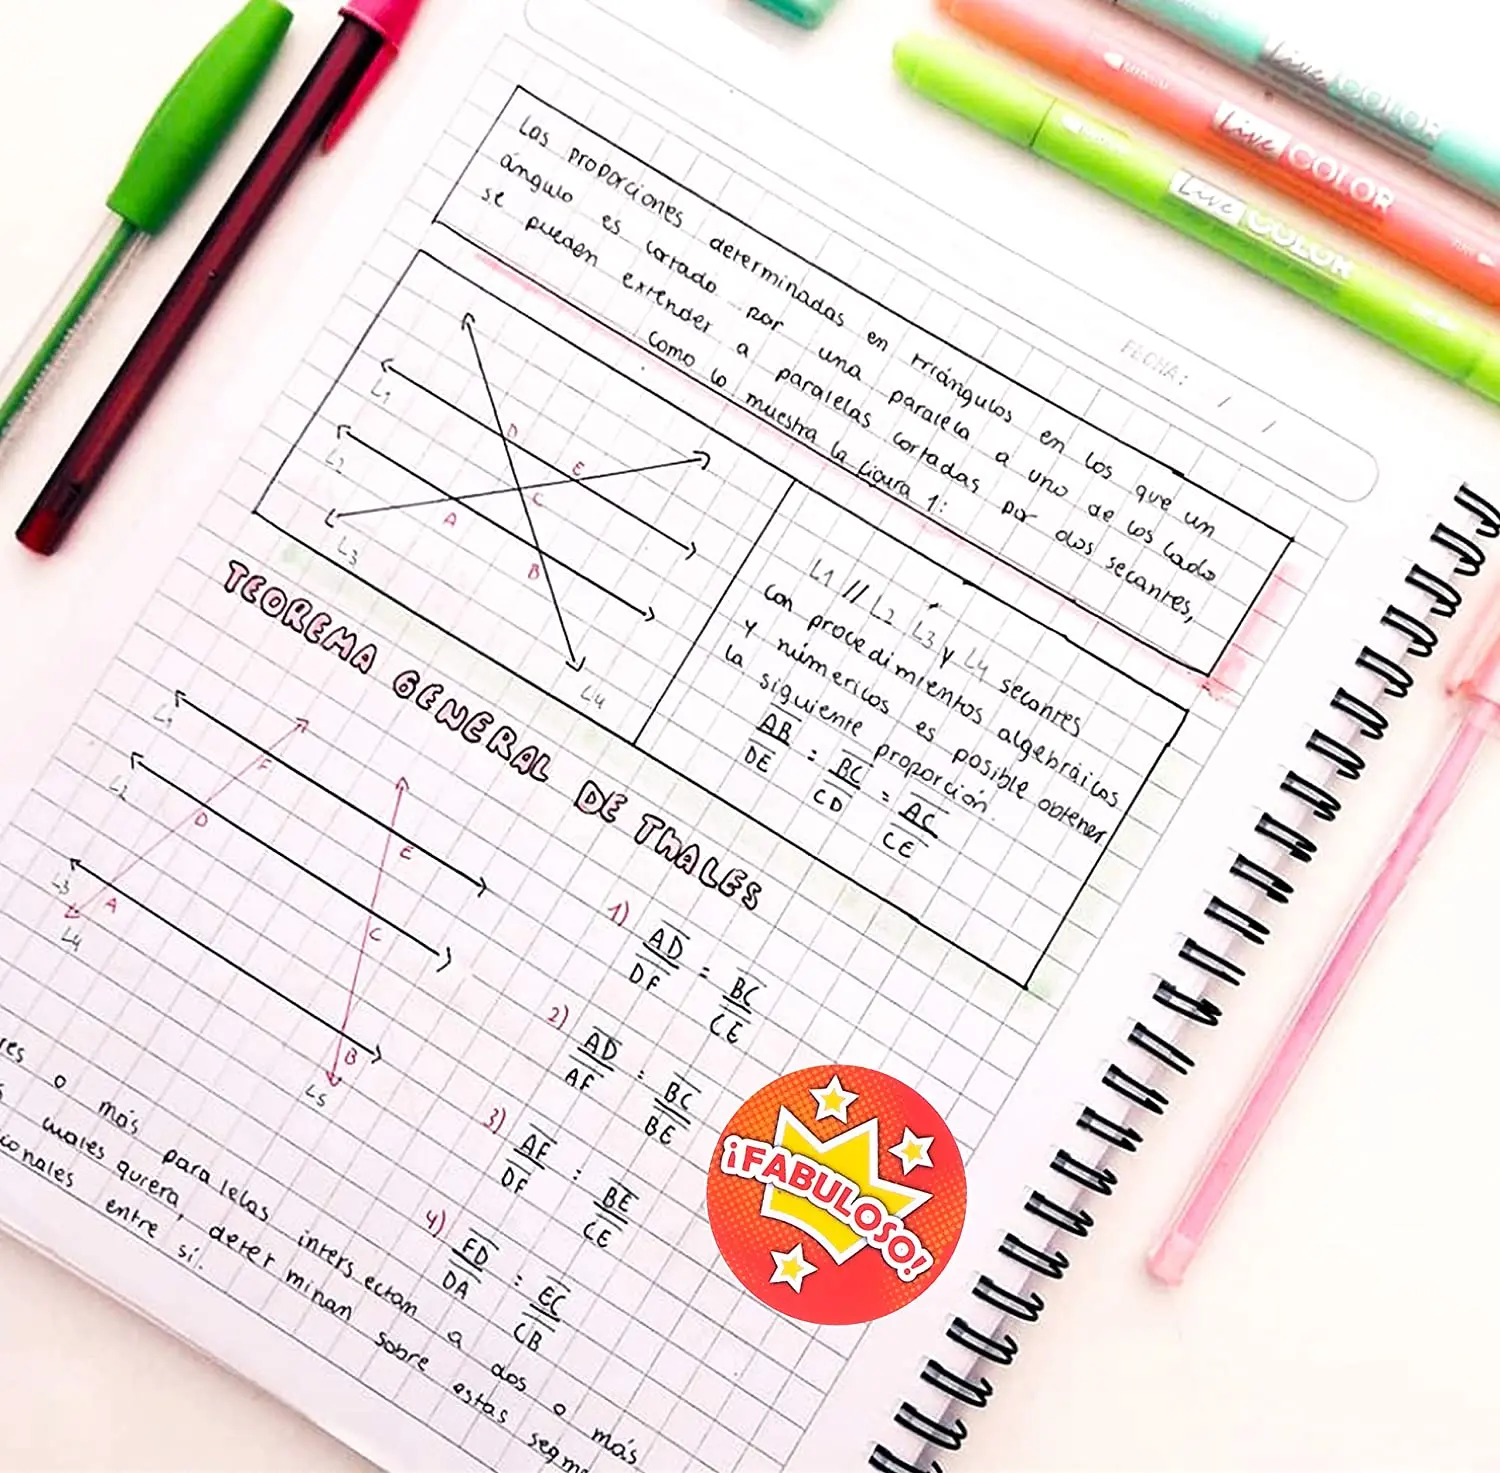 Las proporciones determinadas en triángulos en los que un
ángulo es cortado por una paralela a uno de los lado
se pueden extender a paralelas cortadas por dos secantes,
como lo muestra la figura 1:
FECHA: / /
L1
L2
L3
L4
D
E
C
A
B
L1 // L2 L3 y L4 secantes
con procedimientos algebráicos
y númericos es posible obtener
la siguiente proporción.
AB/DE = BC/CD = AC/CE
TEOREMA GENERAL DE THALES
L1
L2
L3
L4
L5
F
D
E
A
C
B
1) AD/DF = BC/CE
2) AD/AF = BC/BE
3) AF/DF = BE/CE
4) FD/DA = EC/CB
res o más paralelas intersectan a dos o más
cuales quiera, determinan sobre estas segm
ionales entre sí.
¡FABULOSO!
Live COLOR
Live COLOR
Live COLOR